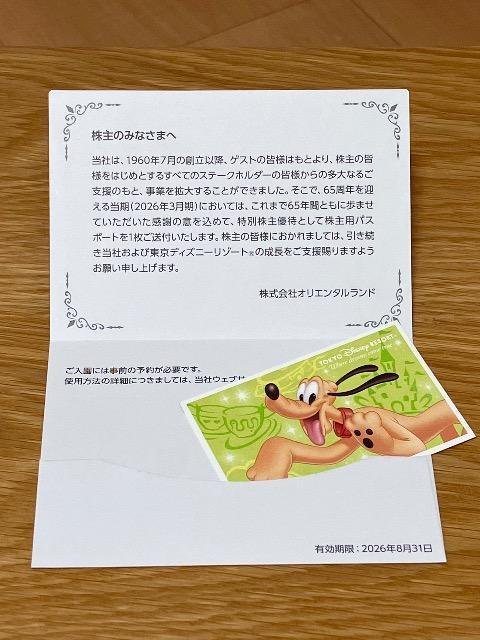 株主のみなさまへ
当社は、1960年7月の創立以降、ゲストの皆様はもとより、株主の皆
様をはじめとするすべてのステークホルダーの皆様からの多大なるご
支援のもと、事業を拡大することができました。そこで、65周年を迎え
る当期(2026年3月期)においては、これまで65年間ともに歩ませ
ていただいた感謝の意を込めて、特別株主優待として株主用パス
ポートを1枚ご送付いたします。株主の皆様におかれましては、引き続
き当社および東京ディズニーリゾート®の成長をご支援賜りますよう
お願い申し上げます。
株式会社オリエンタルランド
ご入園には事前の予約が必要です。
使用方法の詳細につきましては、当社ウェブサ
TOKYO Disney RESORT
Where dreams come true
有効期限：2026年8月31日